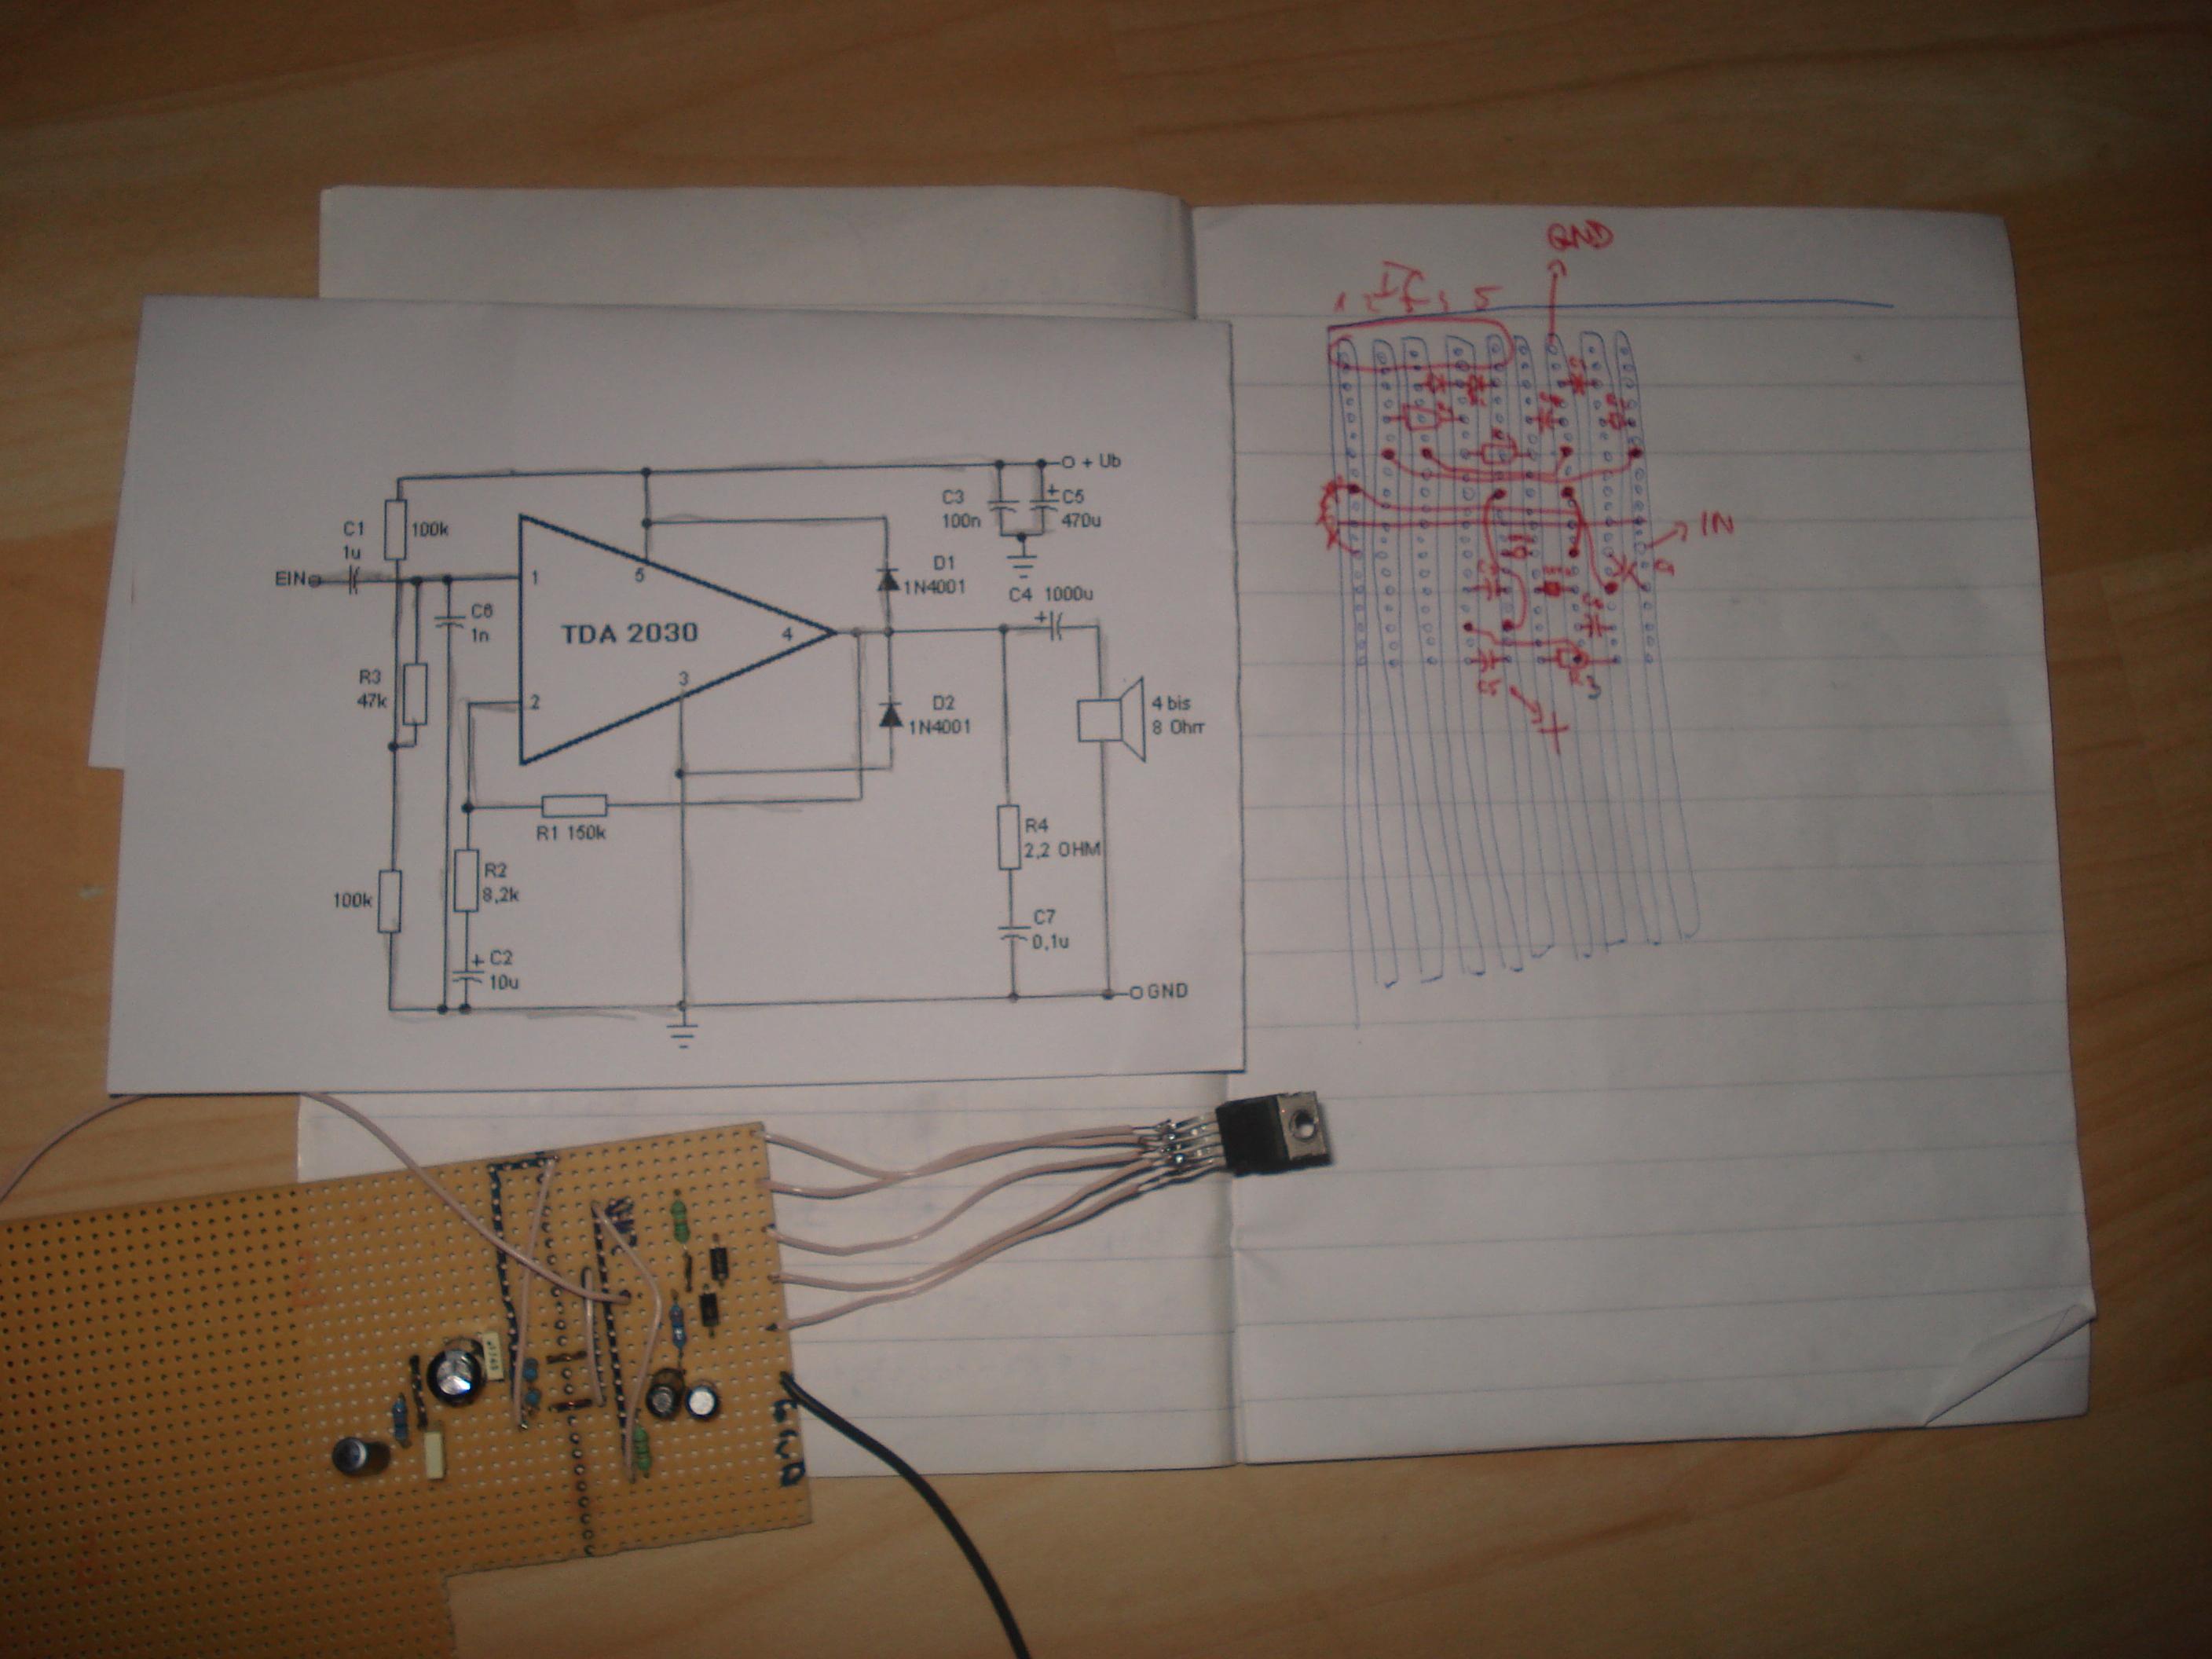 + Ub
C3
100n
+
C5
470u
C1
1u
100k
EIN
1
5
D1
1N4001
C4 1000u
+
C6
1n
TDA 2030
4
R3
47k
3
2
D2
1N4001
4 bis
8 Ohm
R1 150k
R4
2,2 OHM
R2
8,2k
100k
C7
0,1u
+
C2
10u
GND
GND
IC
5
IN
C5
+